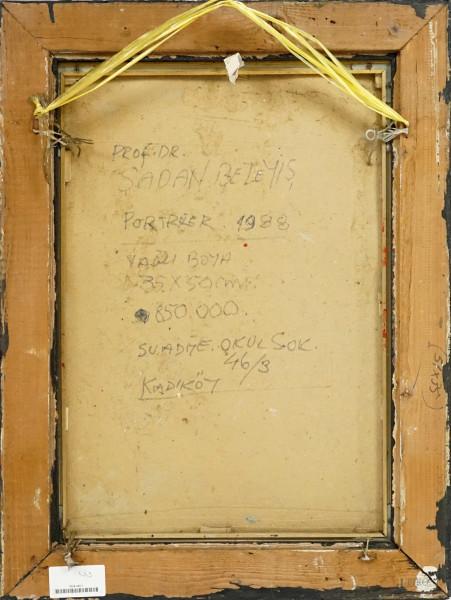 PROF. DR.
ŞADAN BEZEYİŞ
PORTRELER 1988
YAĞLI BOYA
35X50 cm.
850.000.
SUADİYE. OKUL SOK.
46/3
KADIKÖY